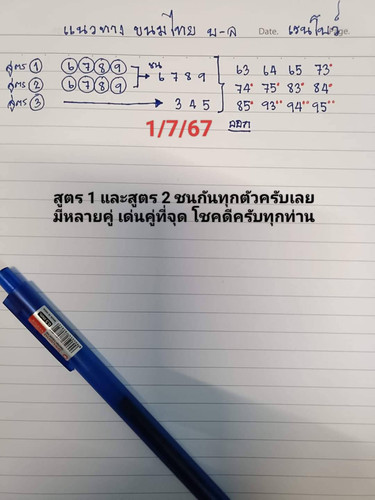 แนวทาง ขนมไทย บ-ล Date. เรนโบว์ age.
สูตร ① ⑥⑦⑧⑨ ชน 63 64 65 73•
สูตร ② ⑥⑦⑧⑨ → 6 7 8 9 74• 75• 83• 84•
สูตร ③ → 3 4 5 85• 93•• 94•• 95••
1/7/67
สูตร 1 และสูตร 2 ชนกันทุกตัวครับเลย
มีหลายคู่ เด่นคู่ที่จุด โชคดีครับทุกท่าน